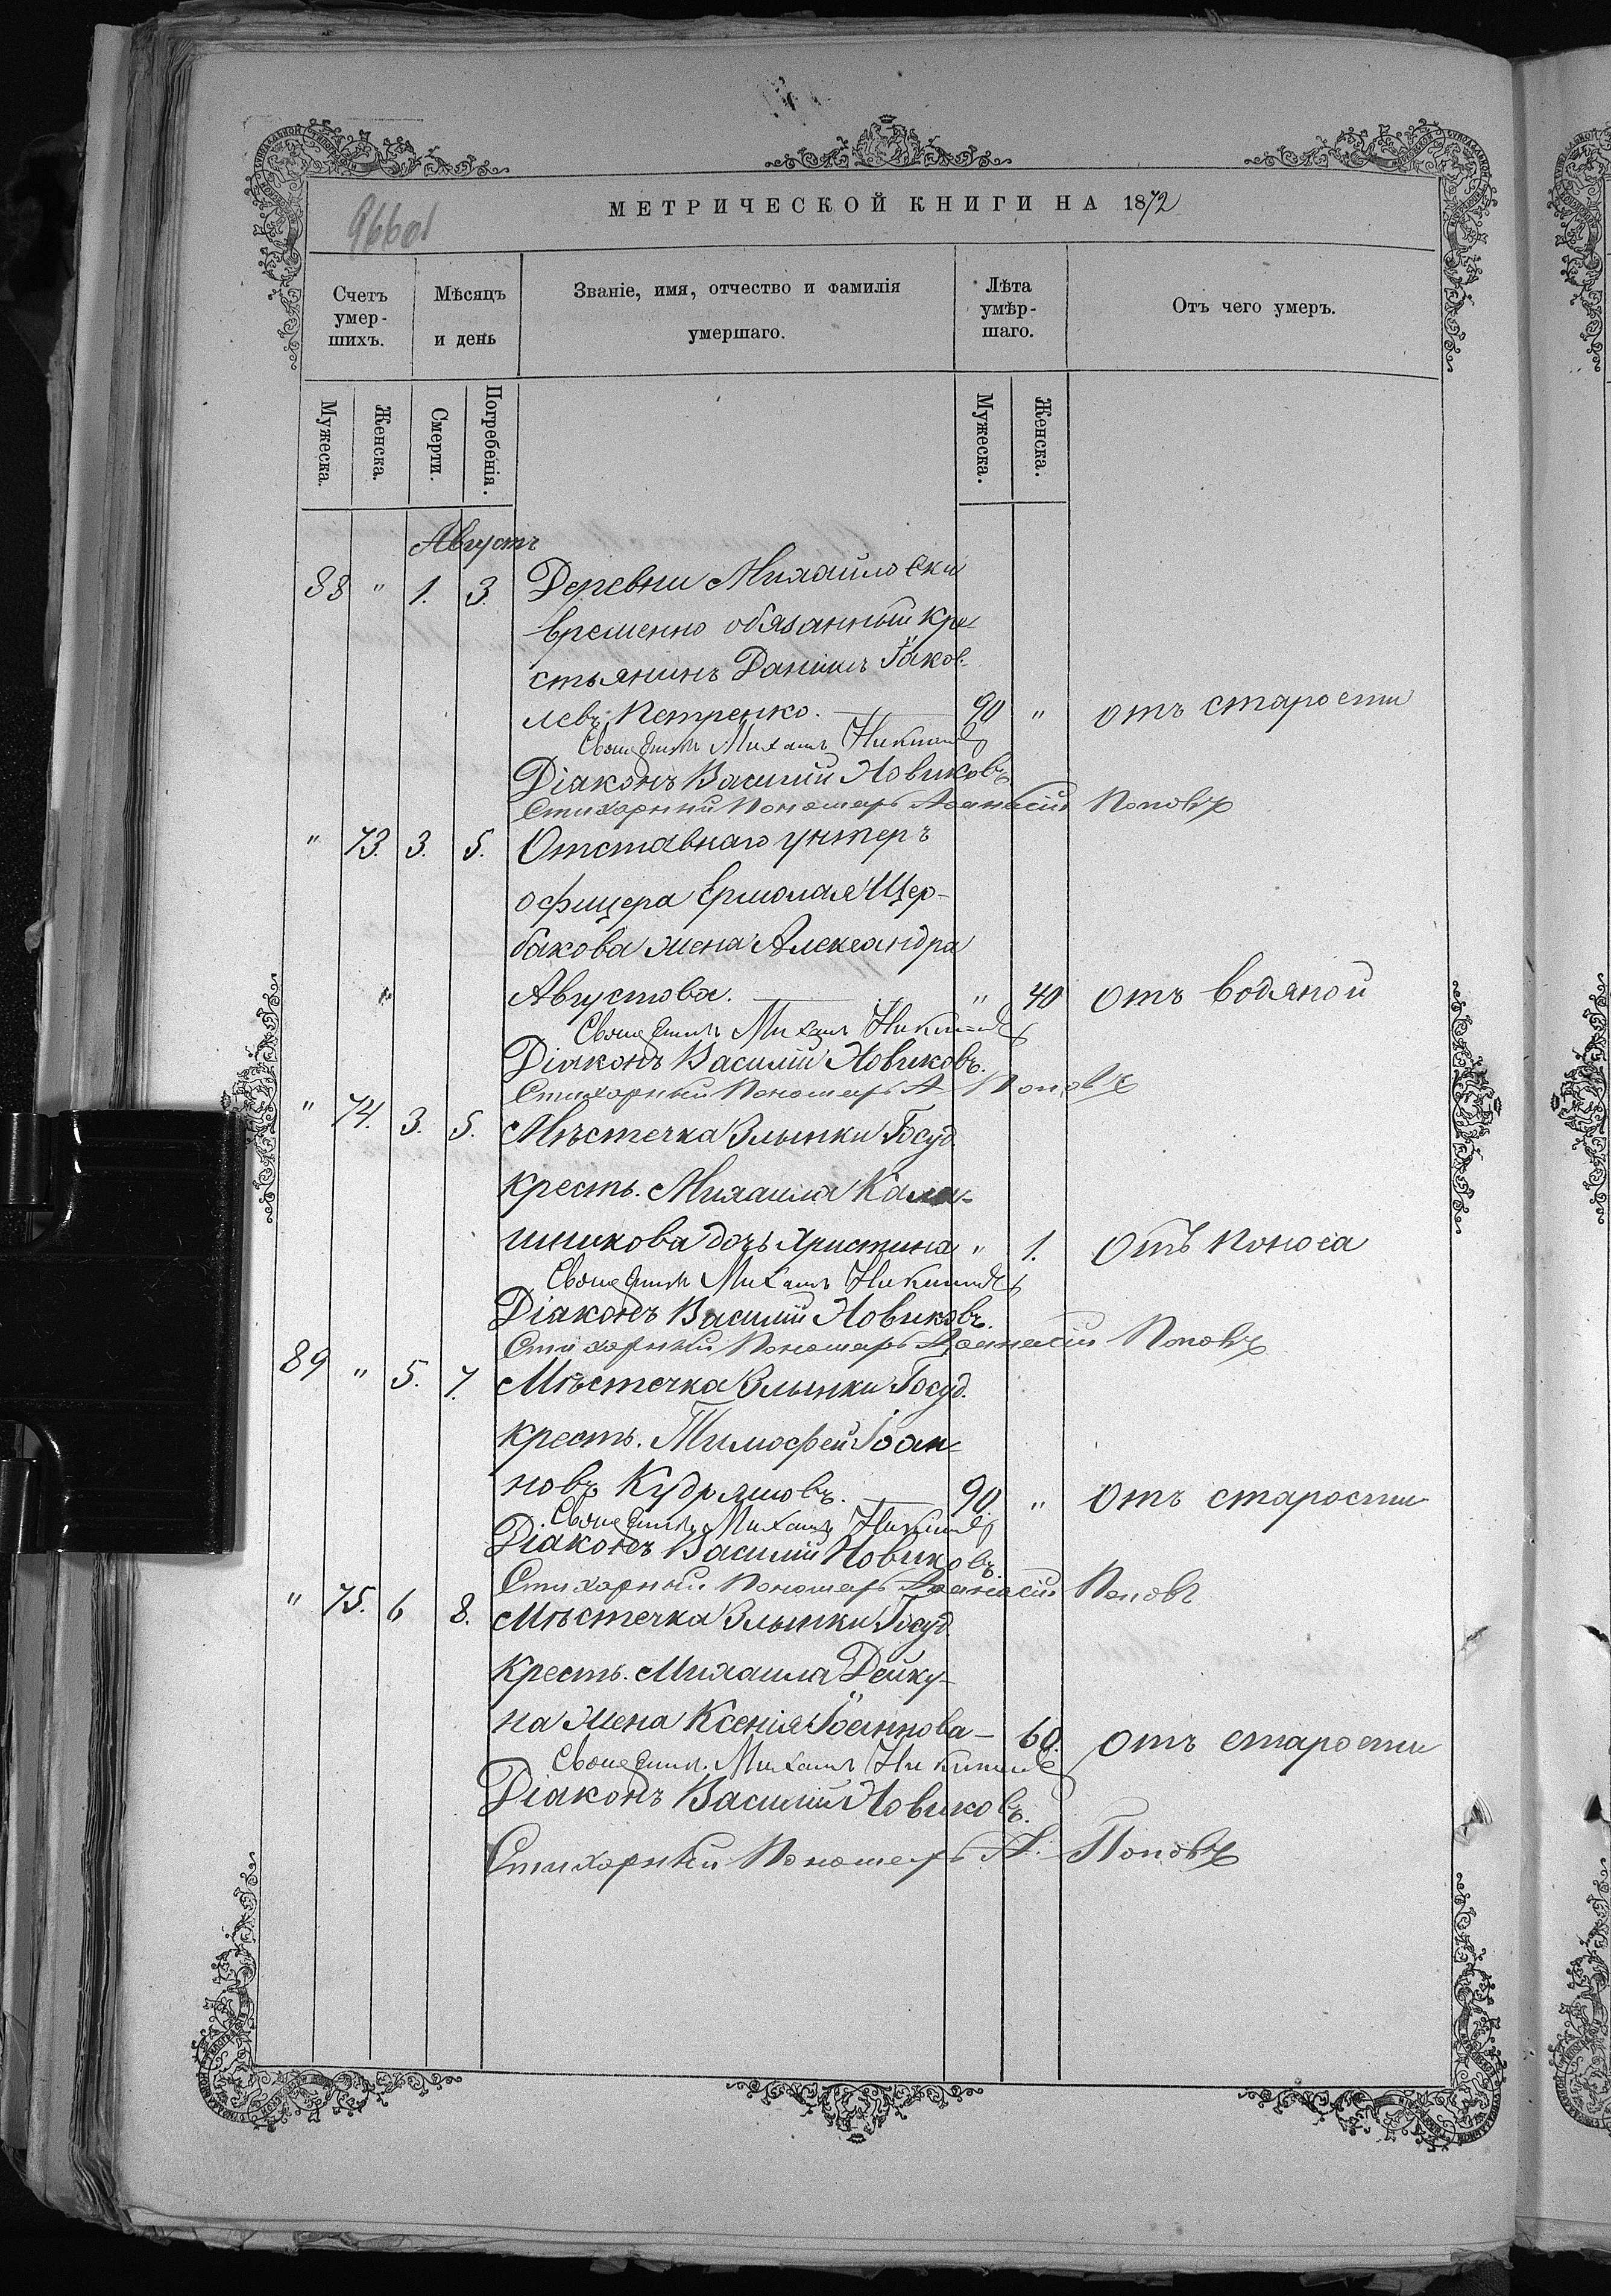 МЕТРИЧЕСКОЙ КНИГИ НА 1872
Счетъ умер-шихъ.
Мѣсяцъ и день
Званіе, имя, отчество и фамилія умершаго.
Лѣта умѣр-шаго.
Отъ чего умеръ.
Мужеска. Женска. Смерти. Погребенія. Мужеска. Женска.
Августъ
88 " 1. 3. Деревни Михайловки
временно обязанный кре-
стьянинъ Даніилъ Іаков-
левъ Петренко. 90 " отъ старости
Священникъ Михаилъ
Діаконъ Василій Новиковъ
Стихарный Пономарь Аѳанасій Поповъ
" 73. 3. 5. Отставнаго унтеръ
офицера Ермолая Щер-
бакова жена Александра
Августова. " 40 Отъ водяной
Священникъ Михаилъ
Діаконъ Василій Новиковъ.
Стихарный Пономарь А Поповъ
" 74. 3. 5. Мѣстечка Злынки Госуд.
кресть. Михаила
шникова дочь Христина " 1. Отъ поноса
Священникъ Михаилъ
Діаконъ Василій Новиковъ.
Стихарный Пономарь Аѳанасій Поповъ
89 " 5. 7. Мѣстечка Злынки Госуд.
кресть. Тимофей Іоан-
новъ Кудряшовъ. 90. " Отъ старости
Священникъ Михаилъ
Діаконъ Василій Новиковъ.
Стихарный Пономарь Аѳанасій Поповъ
" 75. 6 8. Мѣстечка Злынки Госуд.
кресть. Михаила Дейку-
на жена Ксенія Іоаннова — 60. Отъ старости
Священникъ Михаилъ
Діаконъ Василій Новиковъ.
Стихарный Пономарь А. Поповъ